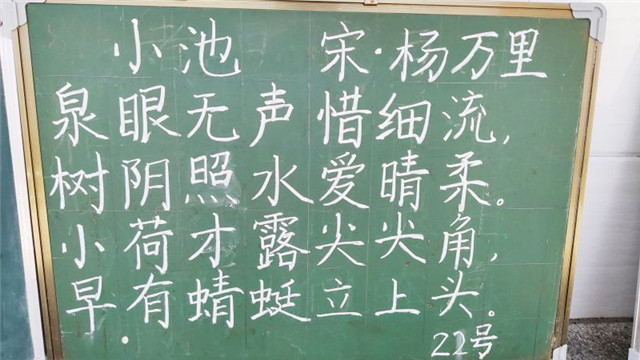 小池 宋·杨万里
泉眼无声惜细流,
树阴照水爱晴柔。
小荷才露尖尖角,
早有蜻蜓立上头。
22号